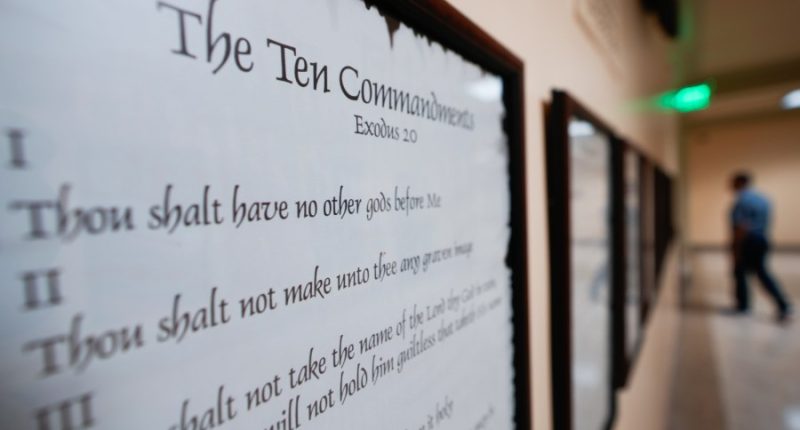 The Ten Commandments
Exodus 20
I
Thou shalt have no other gods before Me
II
Thou shalt not make unto thee any graven image
III
shalt not take the name of the Lord thy God in vain
will not hold him guiltless that taketh His name
it holy